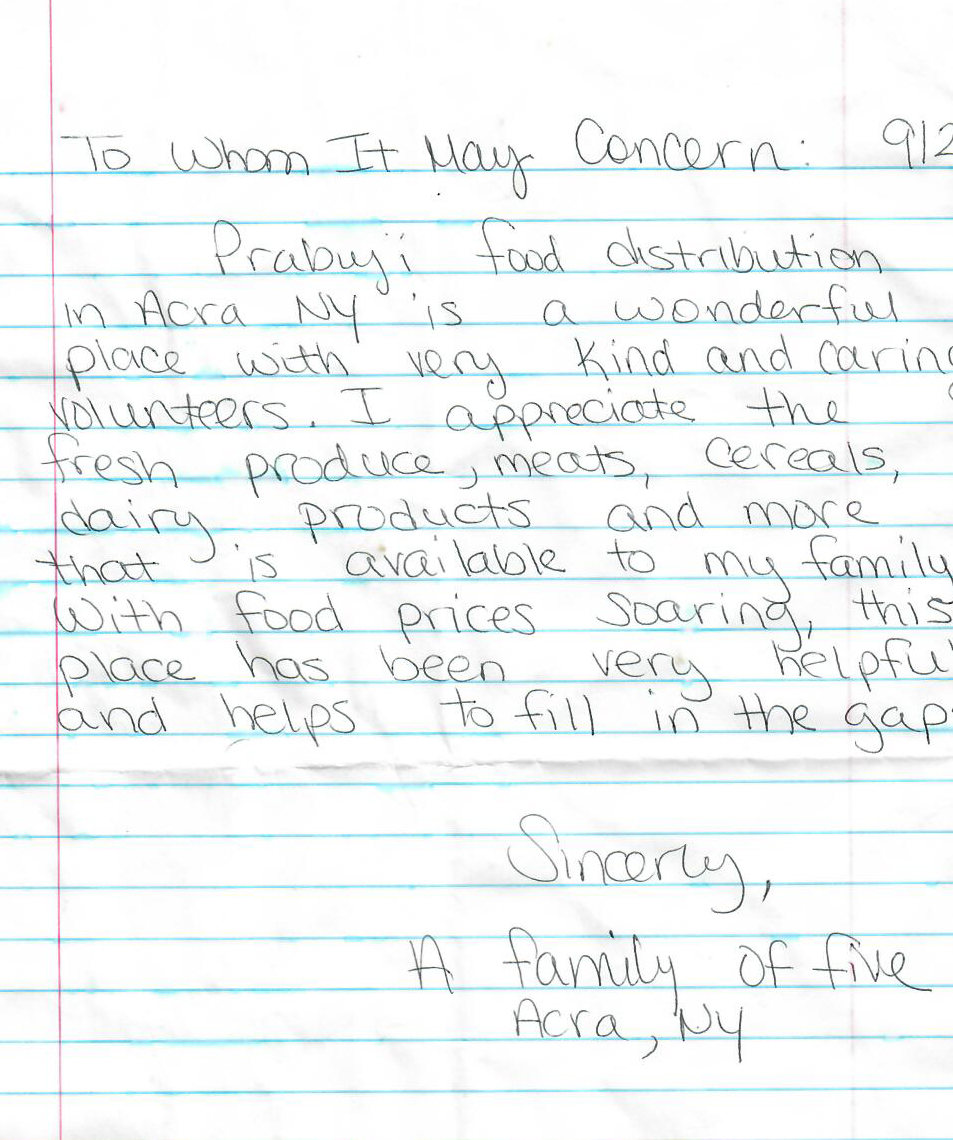 To Whom It May Concern: 9/2
Prabuji food distribution
in Acra NY is a wonderful
place with very kind and caring
volunteers. I appreciate the
fresh produce, meats, cereals,
dairy products and more
that is available to my family
With food prices soaring, this
place has been very helpful
and helps to fill in the gap
Sincerly,
A family of five
Acra, NY